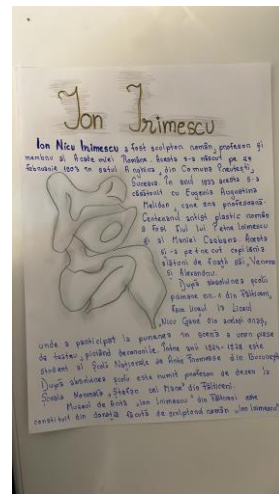 Ion Irimescu
Ion Nicu Irimescu a fost sculptor român, profesor și
membru al Academiei Române. Acesta s-a născut pe 27
februarie 1903 în satul Arghira, din Comuna Preutești,
Suceava. În anul 1933 acesta s-a
căsătorit cu Eugenia Augustina
Melidon, care era profesoară.
Centenarul artist plastic român
a fost fiul lui Petre Irimescu
și al Mariei Cazbana. Acesta
și-a petrecut copilăria
alături de frații săi, Verona
și Alexandru.
După absolvirea școlii
primare nr. 1 din Fălticeni,
fiind la Liceul
„Nicu Gane" din același oraș,
unde a participat la punerea în scenă a unor piese
de teatru, pictând decorurile. Între anii 1924-1928 este
student al Școlii Naționale de Arte Frumoase din București.
După absolvirea școlii este numit profesor de desen la
Școala Normală „Ștefan cel Mare" din Fălticeni.
Muzeul de Artă „Ion Irimescu" din Fălticeni este
constituit din donația făcută de sculptorul român „Ion Irimescu"